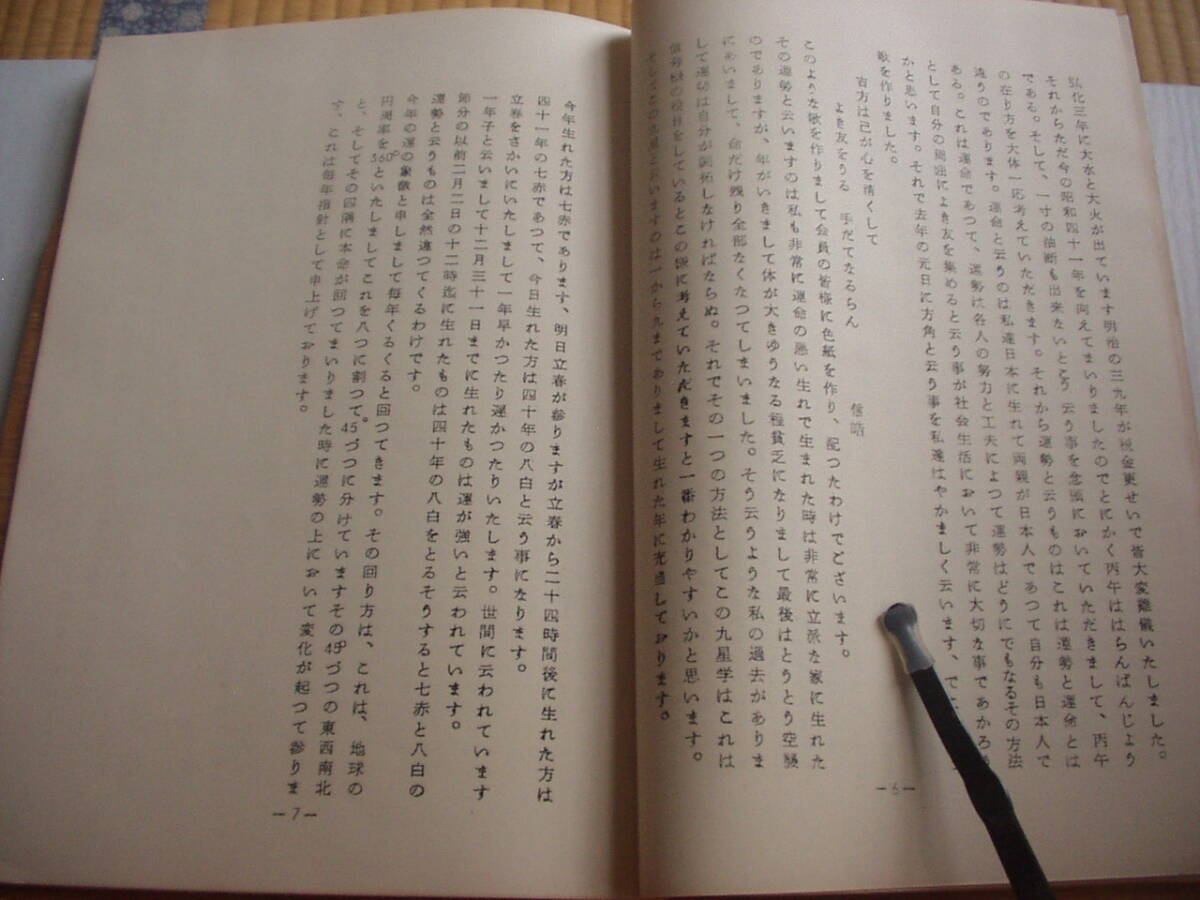 弘化三年に大水と大火が出ています明治の三九年が税金更せいで皆大変難儀いたしました。
それからただ今の昭和四十一年を向えてまいりましたのでとにかく丙午ははらんばんじょう
である。そして、一寸の油断も出来ないとこう云う事を念頭においていただきまして、丙午
の在り方を大体一応考えていただきます。それから運勢と云うものはこれは運勢と運命とは
違うのであります。運命と云うのは私達日本に生れて両親が日本人であつて自分も日本人で
ある。これは運命であつて、運勢は各人の努力と工夫によつて運勢はどうにでもなるその方法
として自分の周囲によき友を集めると云う事が社会生活において非常に大切な事であかろ
かと思います。それで去年の元日に方角と云う事を私達はやかましく云います、で
歌を作りました。
吉方は己が心を清くして
よき友をうる 手だてなるらん
信晧
このような歌を作りまして会員の皆様に色紙を作り、配つたわけでございます。
その運勢と云いますのは私も非常に運命の悪い生れで生まれた時は非常に立派な家に生れた
のでありますが、年がいきまして体が大きゆうなる程貧乏になりまして最後はとうとう空襲
にあいまして、命だけ残り全部なくなつてしまいました。そう云うような私の過去がありま
して運勢は自分が開拓しなければならぬ。それでその一つの方法としてこの九星学はこれは
信号機の役目をしているとこの様に考えていただきますと一番わかりやすいかと思います。
そしてこの九星と云いますのは一から九までありまして生れた年に充当しております。
—6—
今年生れた方は七赤であります、明日立春が参りますが立春から二十四時間後に生れた方は
四十一年の七赤であつて、今日生れた方は四十年の八白と云う事になります。
立春をさかいにいたしまして一年早かつたり遅かつたりいたします。世間に云われています
一年子と云いまして十二月三十一日までに生れたものは運が強いと云われています。
節分の以前二月二日の十二時迄に生れたものは四十年の八白をとるそうすると七赤と八白の
運勢と云うものは全然違つてくるわけです。
今年の運の象徴と申しまして毎年くるくると回つてきます。その回り方は、これは、地球の
円周率を360°といたしましてこれを八つに割つて。45づつに分けていますその45°づつの東西南北
と、そしてその四隅に本命が回つてまいりました時に運勢の上において変化が起つて参りま
す、これは毎年指針として申上げております。
—7—